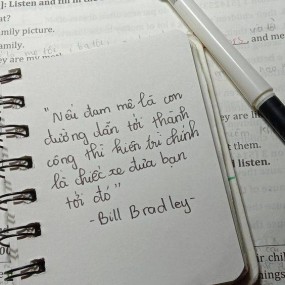 ]: Listen and fill in
at?
mily picture.
amily.
ey are my
, and me
"Nếu đam mê là con
đường dẫn tới thành
công thì kiên trì chính
là chiếc xe đưa bạn
tới đó"
-Bill Bradley-
ey are
them.
listen.
ir chil
ings